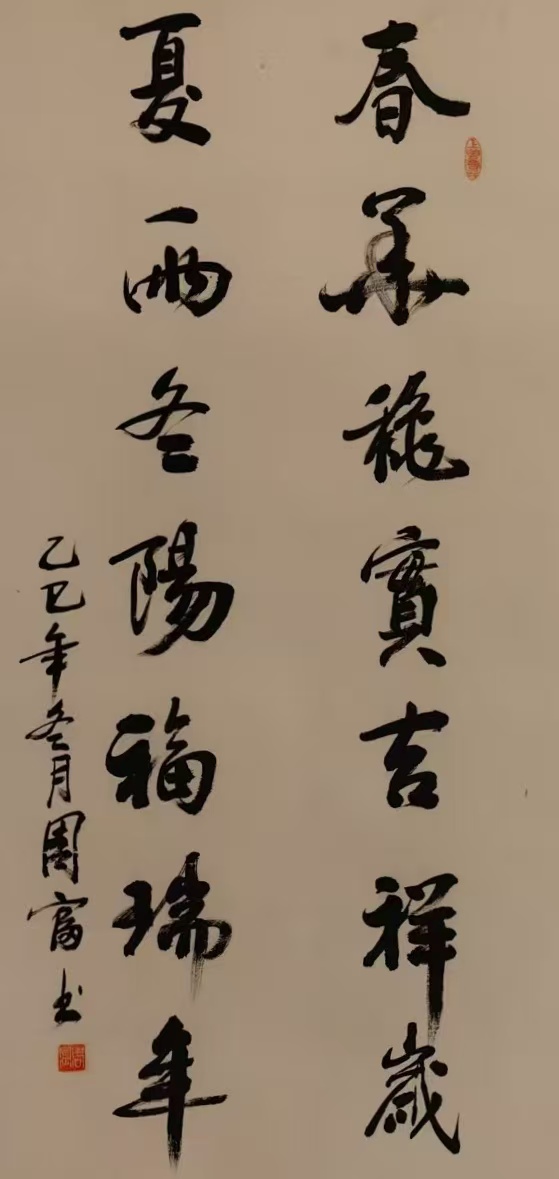 春華秋實吉祥歲
夏雨冬陽福瑞年
乙巳年冬月周富書